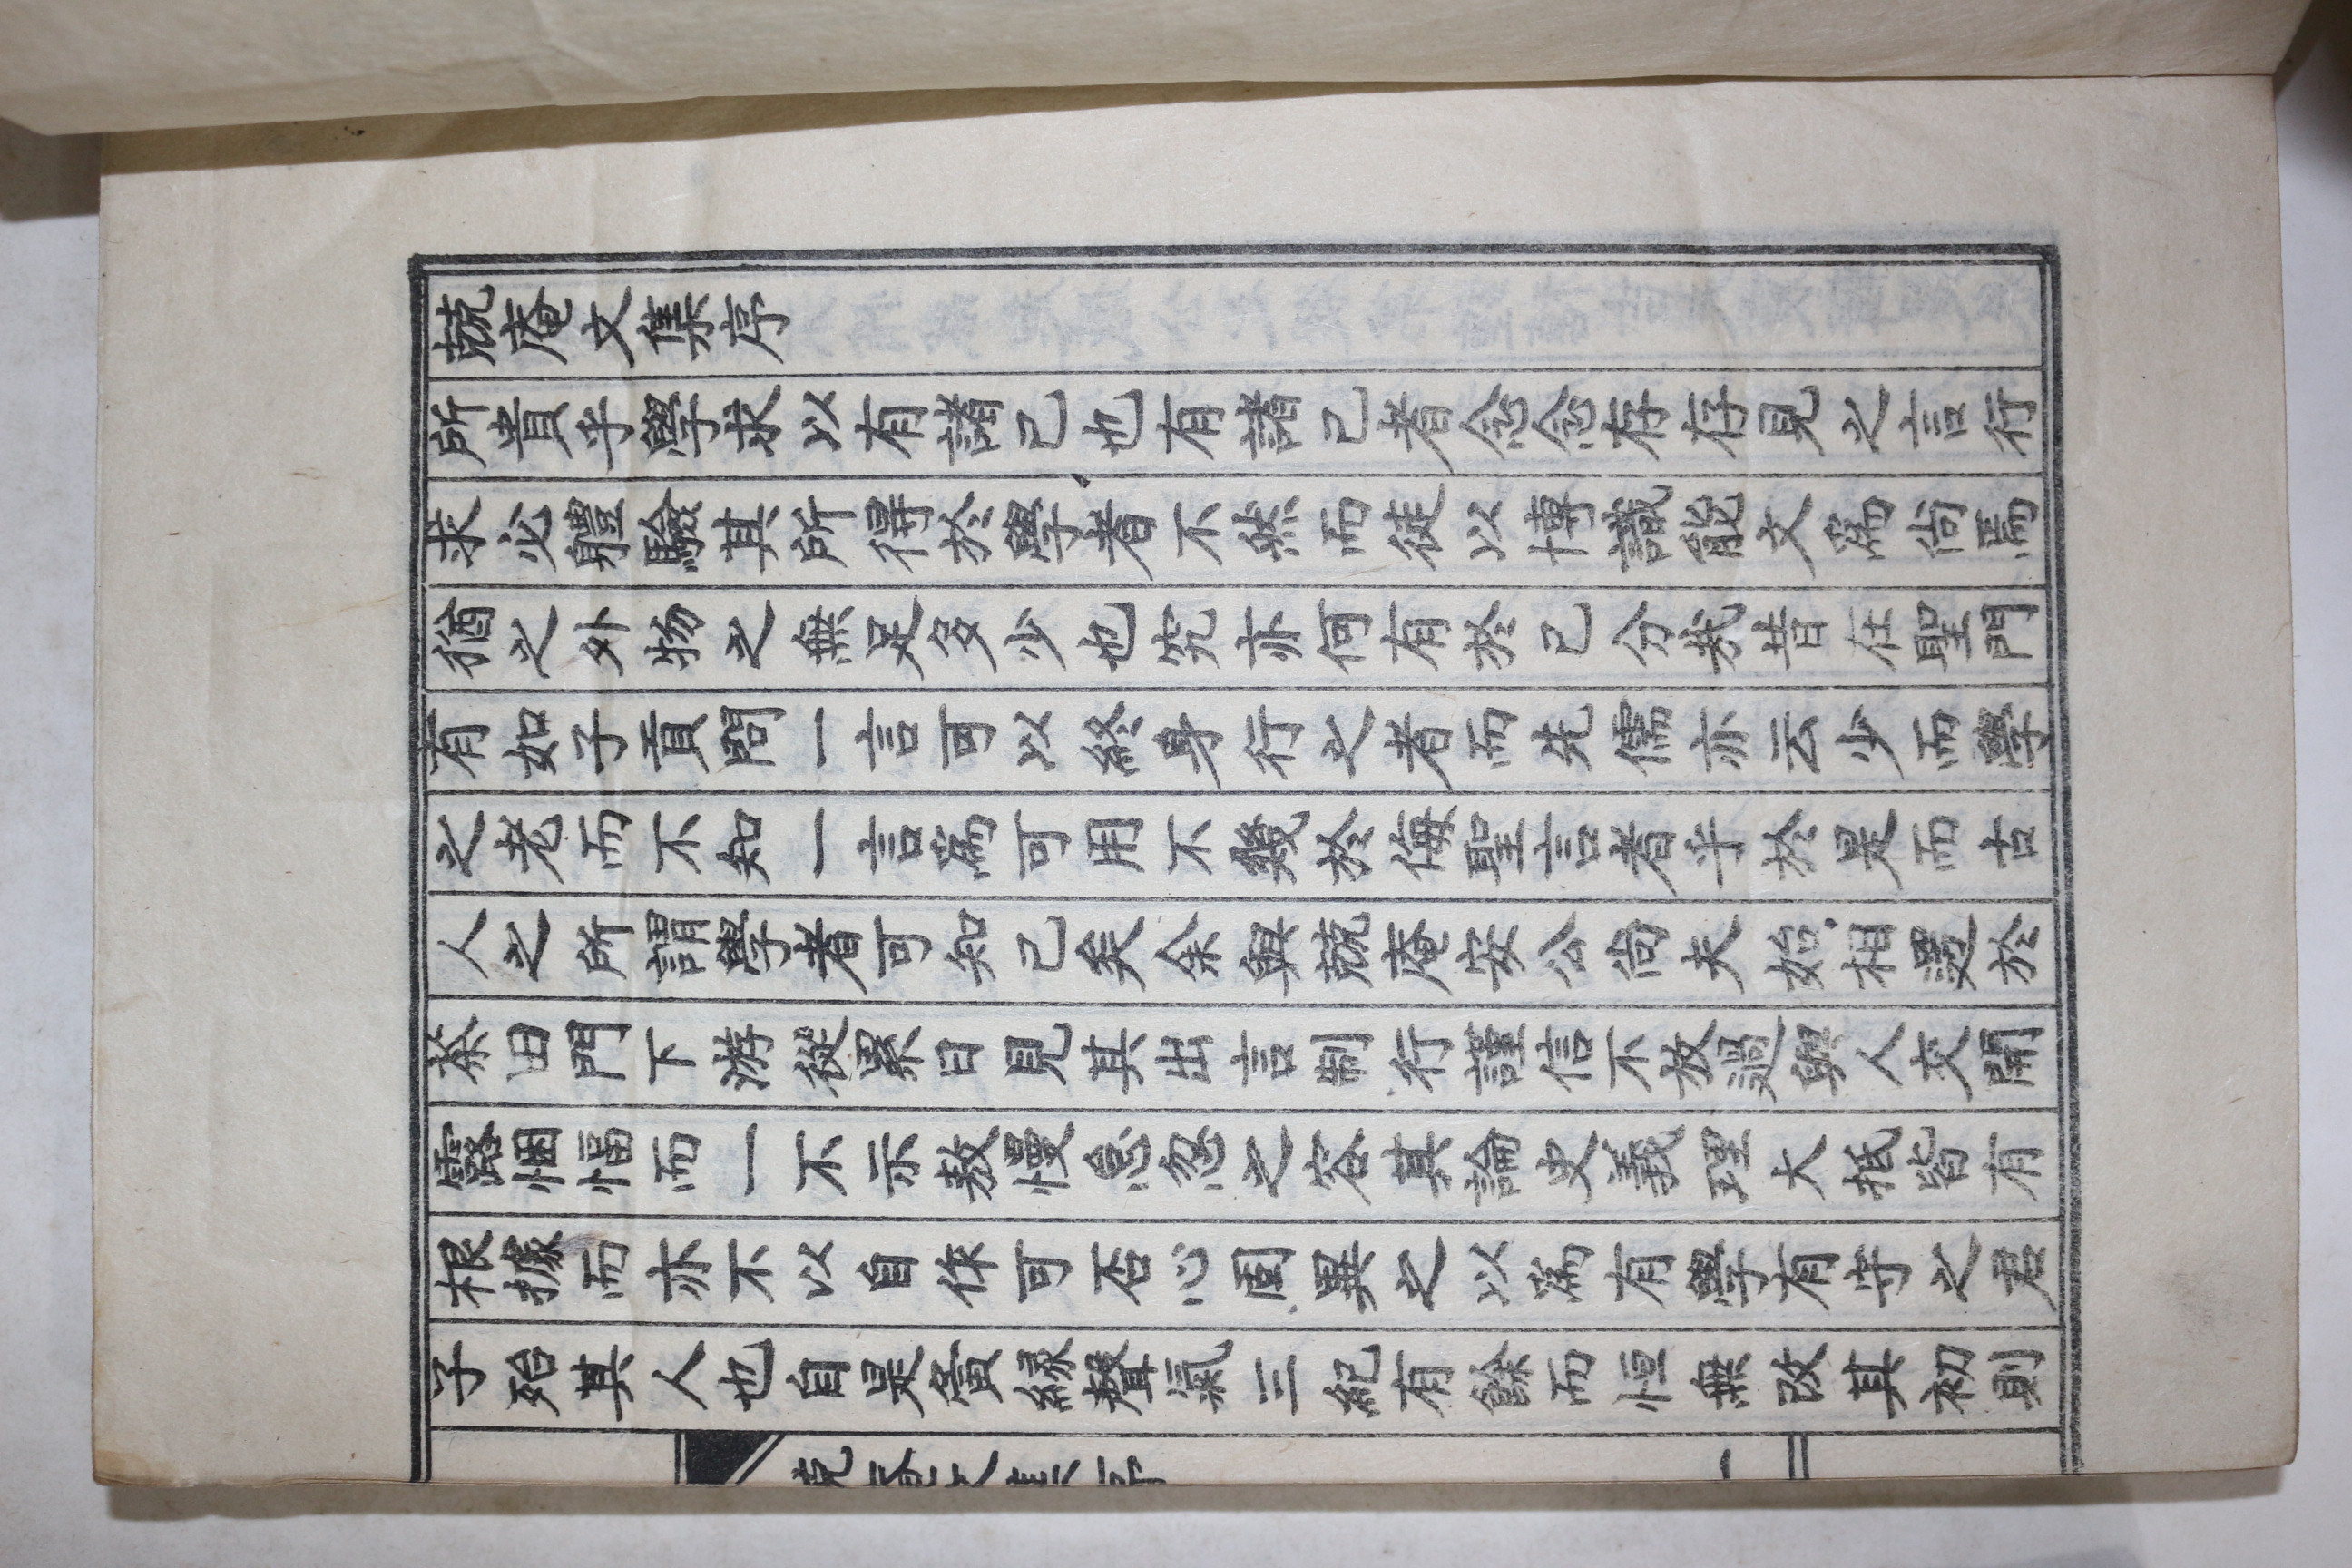 兢庵文集序
所貴乎學求以有諸己也有諸己者念念存存見之言行
求必體驗其所得於學者不然而徒以博識能文爲尙焉
猶之外物之無足多少也究亦何有於己分哉昔在聖門
有如子貢問一言可以終身行之者而先儒亦云少而學
之老而不知一言爲可用不幾於侮聖言者乎於是而古
人之所謂學者可知已矣余與兢庵安公尙夫始相遇於
茶田門下游從累日見其出言制行謹信不放過與人交開
露悃愊而一不示敖慢怠忽之容其論史義理大抵皆有
根據而亦不以自作可否心固異之以爲有學有守之君
子殆其人也自是夤緣聲氣三紀有餘而恒無改其初則
兢庵文集序
一